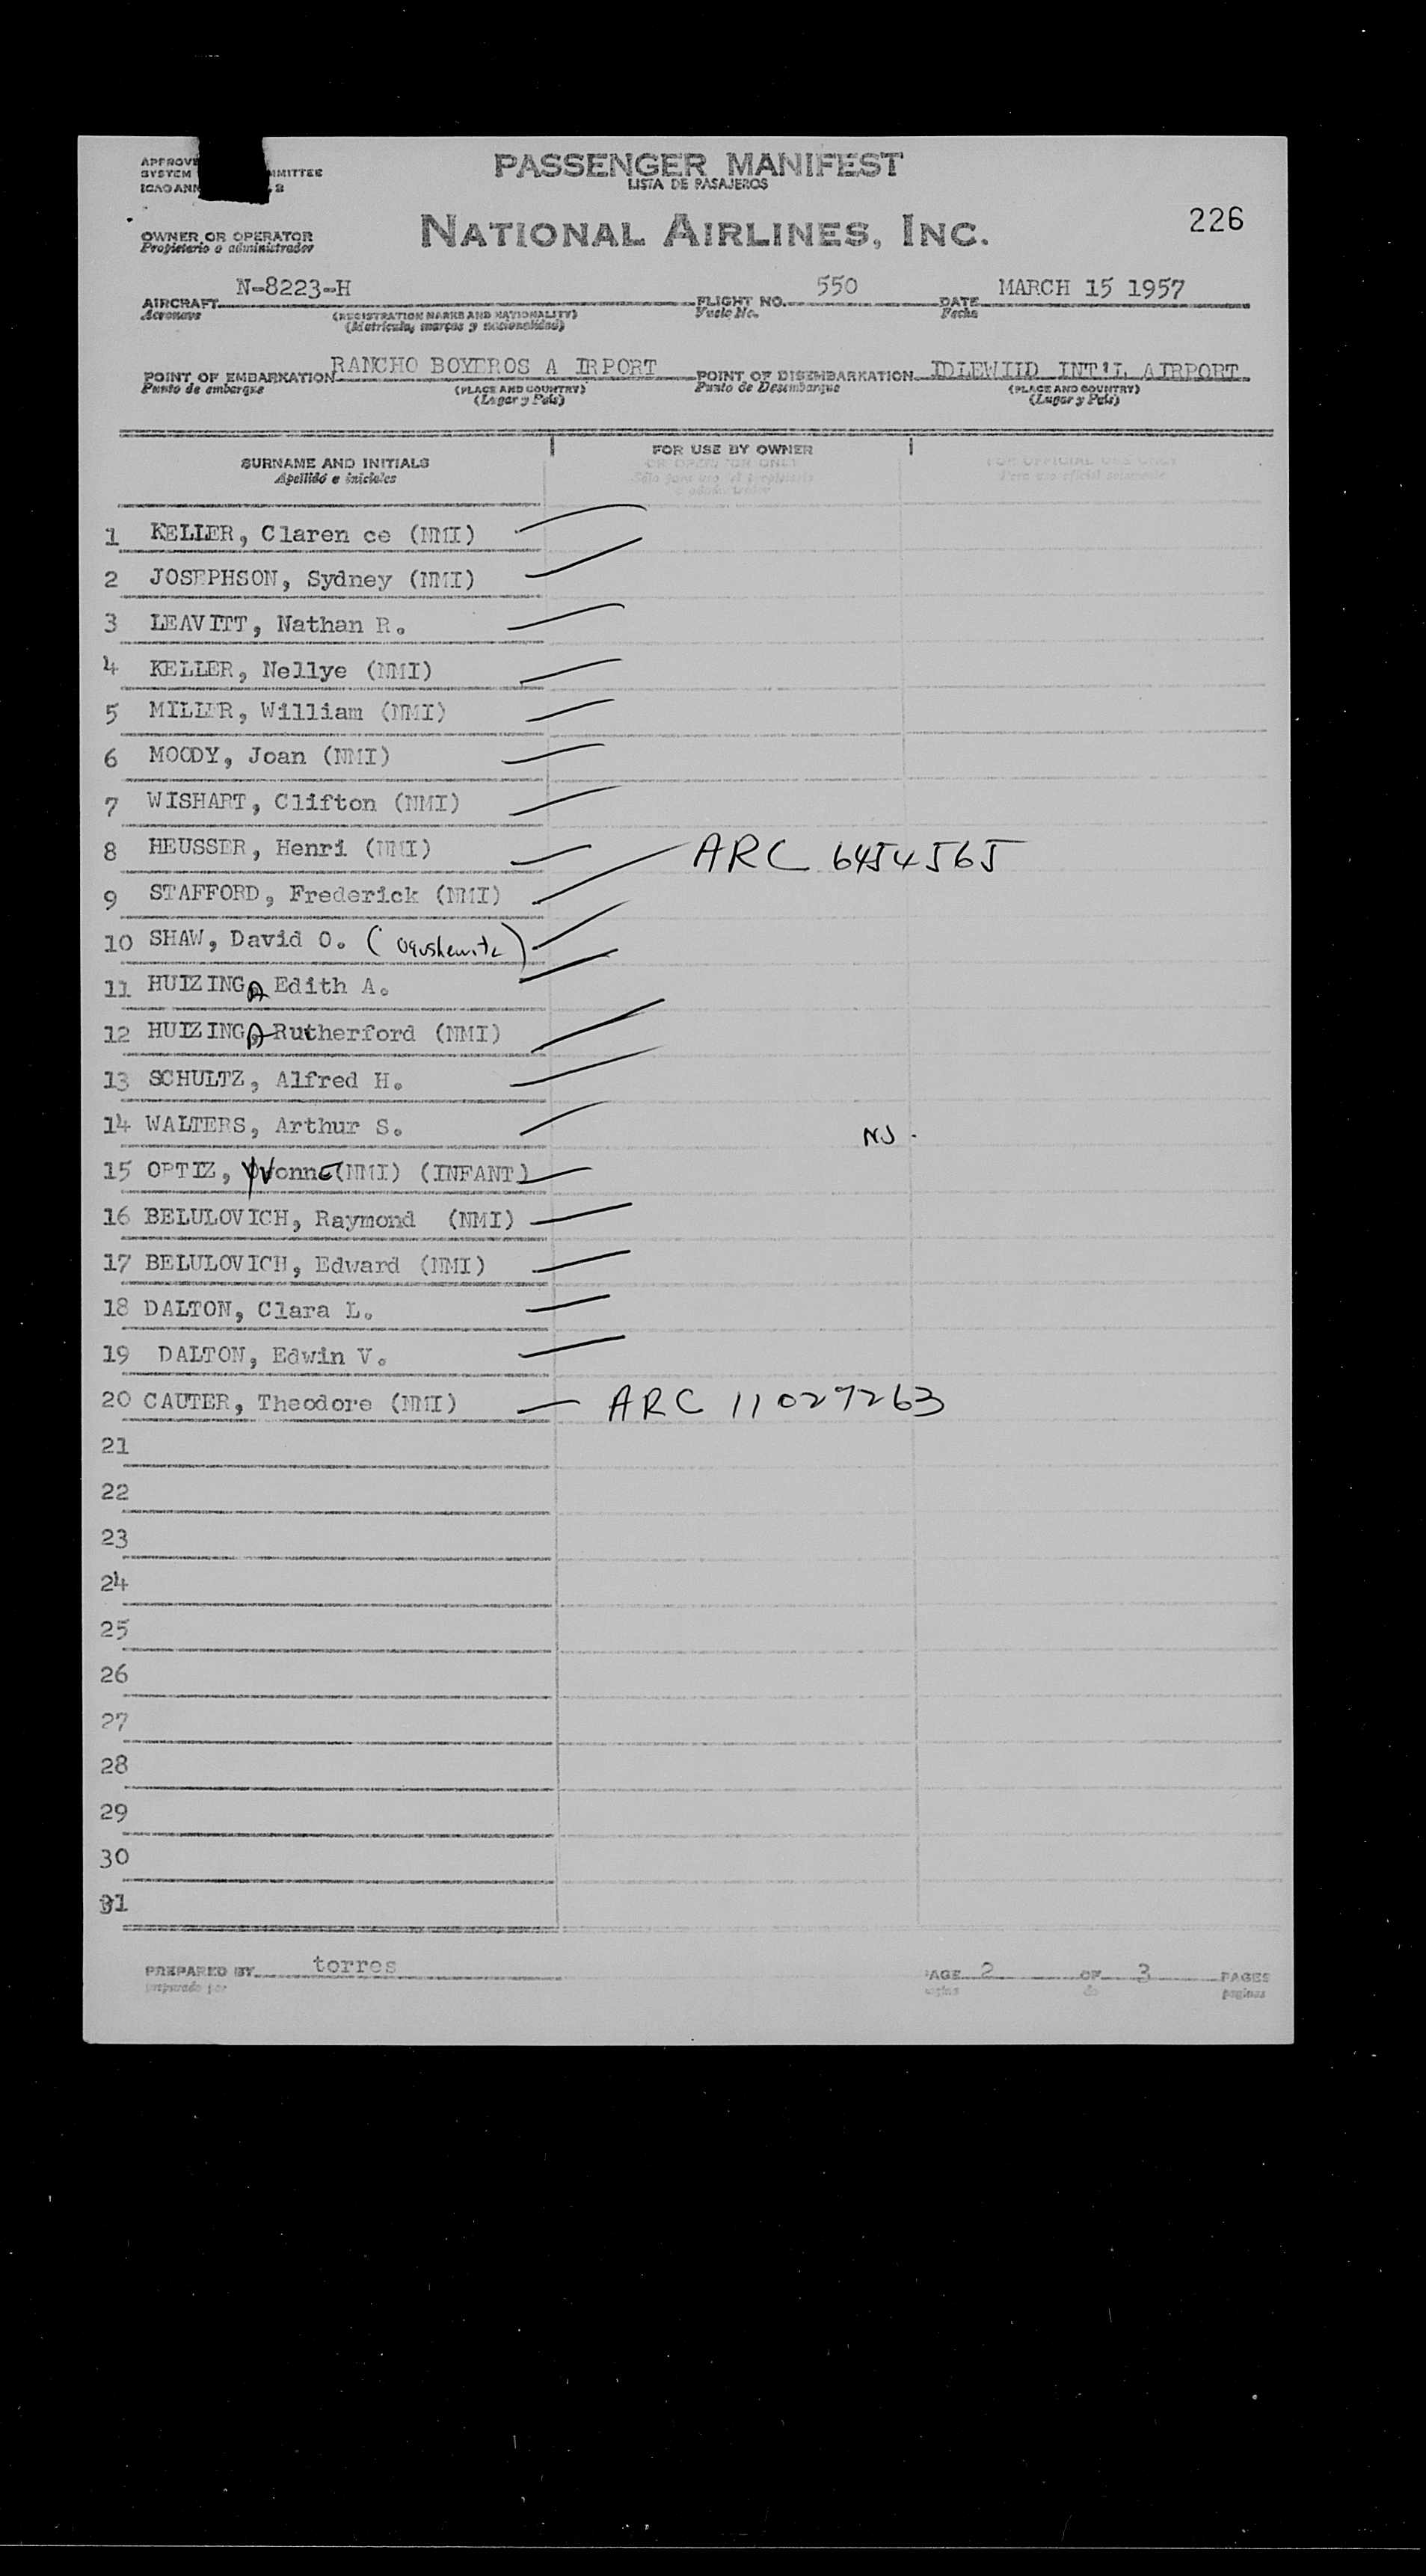 APPROVE MMITTEE
SYSTEM
ICAO ANN 2
PASSENGER MANIFEST
LISTA DE PASAJEROS
226
OWNER OR OPERATOR
Propietario o administrador
NATIONAL AIRLINES, INC.
AIRCRAFT N-8223-H FLIGHT NO. 550 DATE MARCH 15 1957
Aeronave (REGISTRATION MARKS AND NATIONALITY) Vuelo No. Fecha
(Matricula, marcas y nacionalidad)
POINT OF EMBARKATION RANCHO BOYEROS A IRPORT POINT OF DISEMBARKATION IDLEWIID INT'L AIRPORT
Punto de embarque (PLACE AND COUNTRY) Punto de Desembarque (PLACE AND COUNTRY)
(Lugar y País) (Lugar y País)
SURNAME AND INITIALS FOR USE BY OWNER
Apellido e iniciales OR OPERATOR ONLY FOR OFFICIAL USE ONLY
Para uso oficial solamente
1 KELLER, Claren ce (NMI)
2 JOSEPHSON, Sydney (NMI)
3 LEAVITT, Nathan R.
4 KELLER, Nellye (NMI)
5 MILLER, William (NMI)
6 MOODY, Joan (NMI)
7 WISHART, Clifton (NMI)
8 HEUSSER, Henri (NMI) ARC 6454565
9 STAFFORD, Frederick (NMI)
10 SHAW, David O. (Ogushewitz)
11 HUIZINGA Edith A.
12 HUIZINGA Rutherford (NMI)
13 SCHULTZ, Alfred H.
14 WALTERS, Arthur S. NJ.
15 OPTIZ, Yvonne (NMI) (INFANT)
16 BELULOVICH, Raymond (NMI)
17 BELULOVICH, Edward (NMI)
18 DALTON, Clara L.
19 DALTON, Edwin V.
20 CAUTER, Theodore (NMI) ARC 11027263
21
22
23
24
25
26
27
28
29
30
31
PREPARED BY torres PAGE 2 OF 3 PAGES
preparado por pagina de paginas